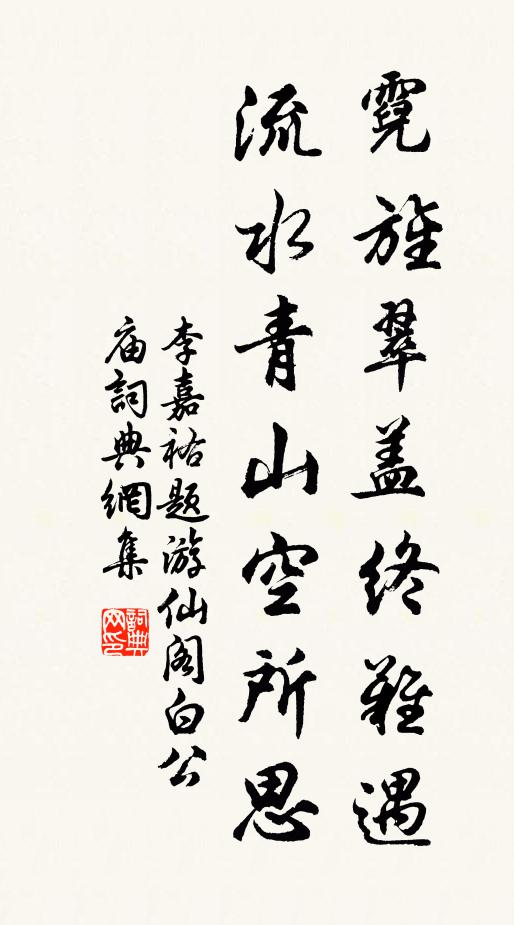 霓旌翠盖终難遇
流水青山空所思
李嘉祐题游仙阁白公
庙詞典網集
詞典网印